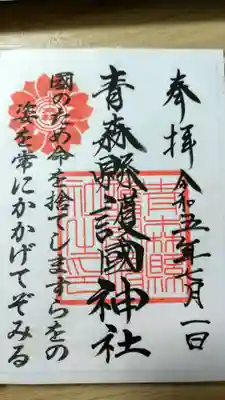 奉拝
令和五年七月一日
青森縣護國神社
國のため命を捨てしますらをの
姿を常にかかげてぞみる